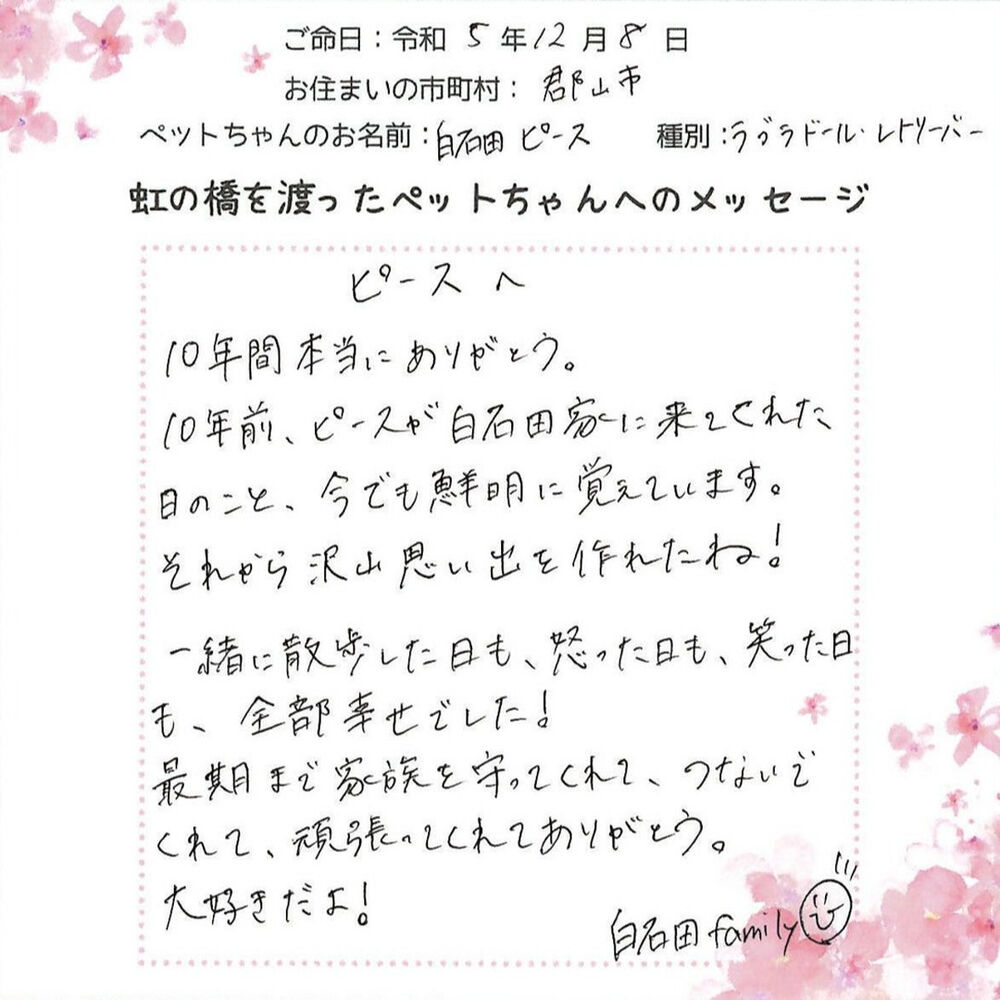 ご命日：令和 5 年 12 月 8 日
お住まいの市町村： 郡山市
ペットちゃんのお名前：白石田 ピース 種別：ラブラドール・レトリーバー
虹の橋を渡ったペットちゃんへのメッセージ
ピースへ
10年間本当にありがとう。
10年前、ピースが白石田家に来てくれた
日のこと、今でも鮮明に覚えています。
それから沢山思い出を作れたね!
一緒に散歩した日も、怒った日も、笑った日
も、全部幸せでした!
最期まで家族を守ってくれて、つないで
くれて、頑張ってくれてありがとう。
大好きだよ!
白石田family